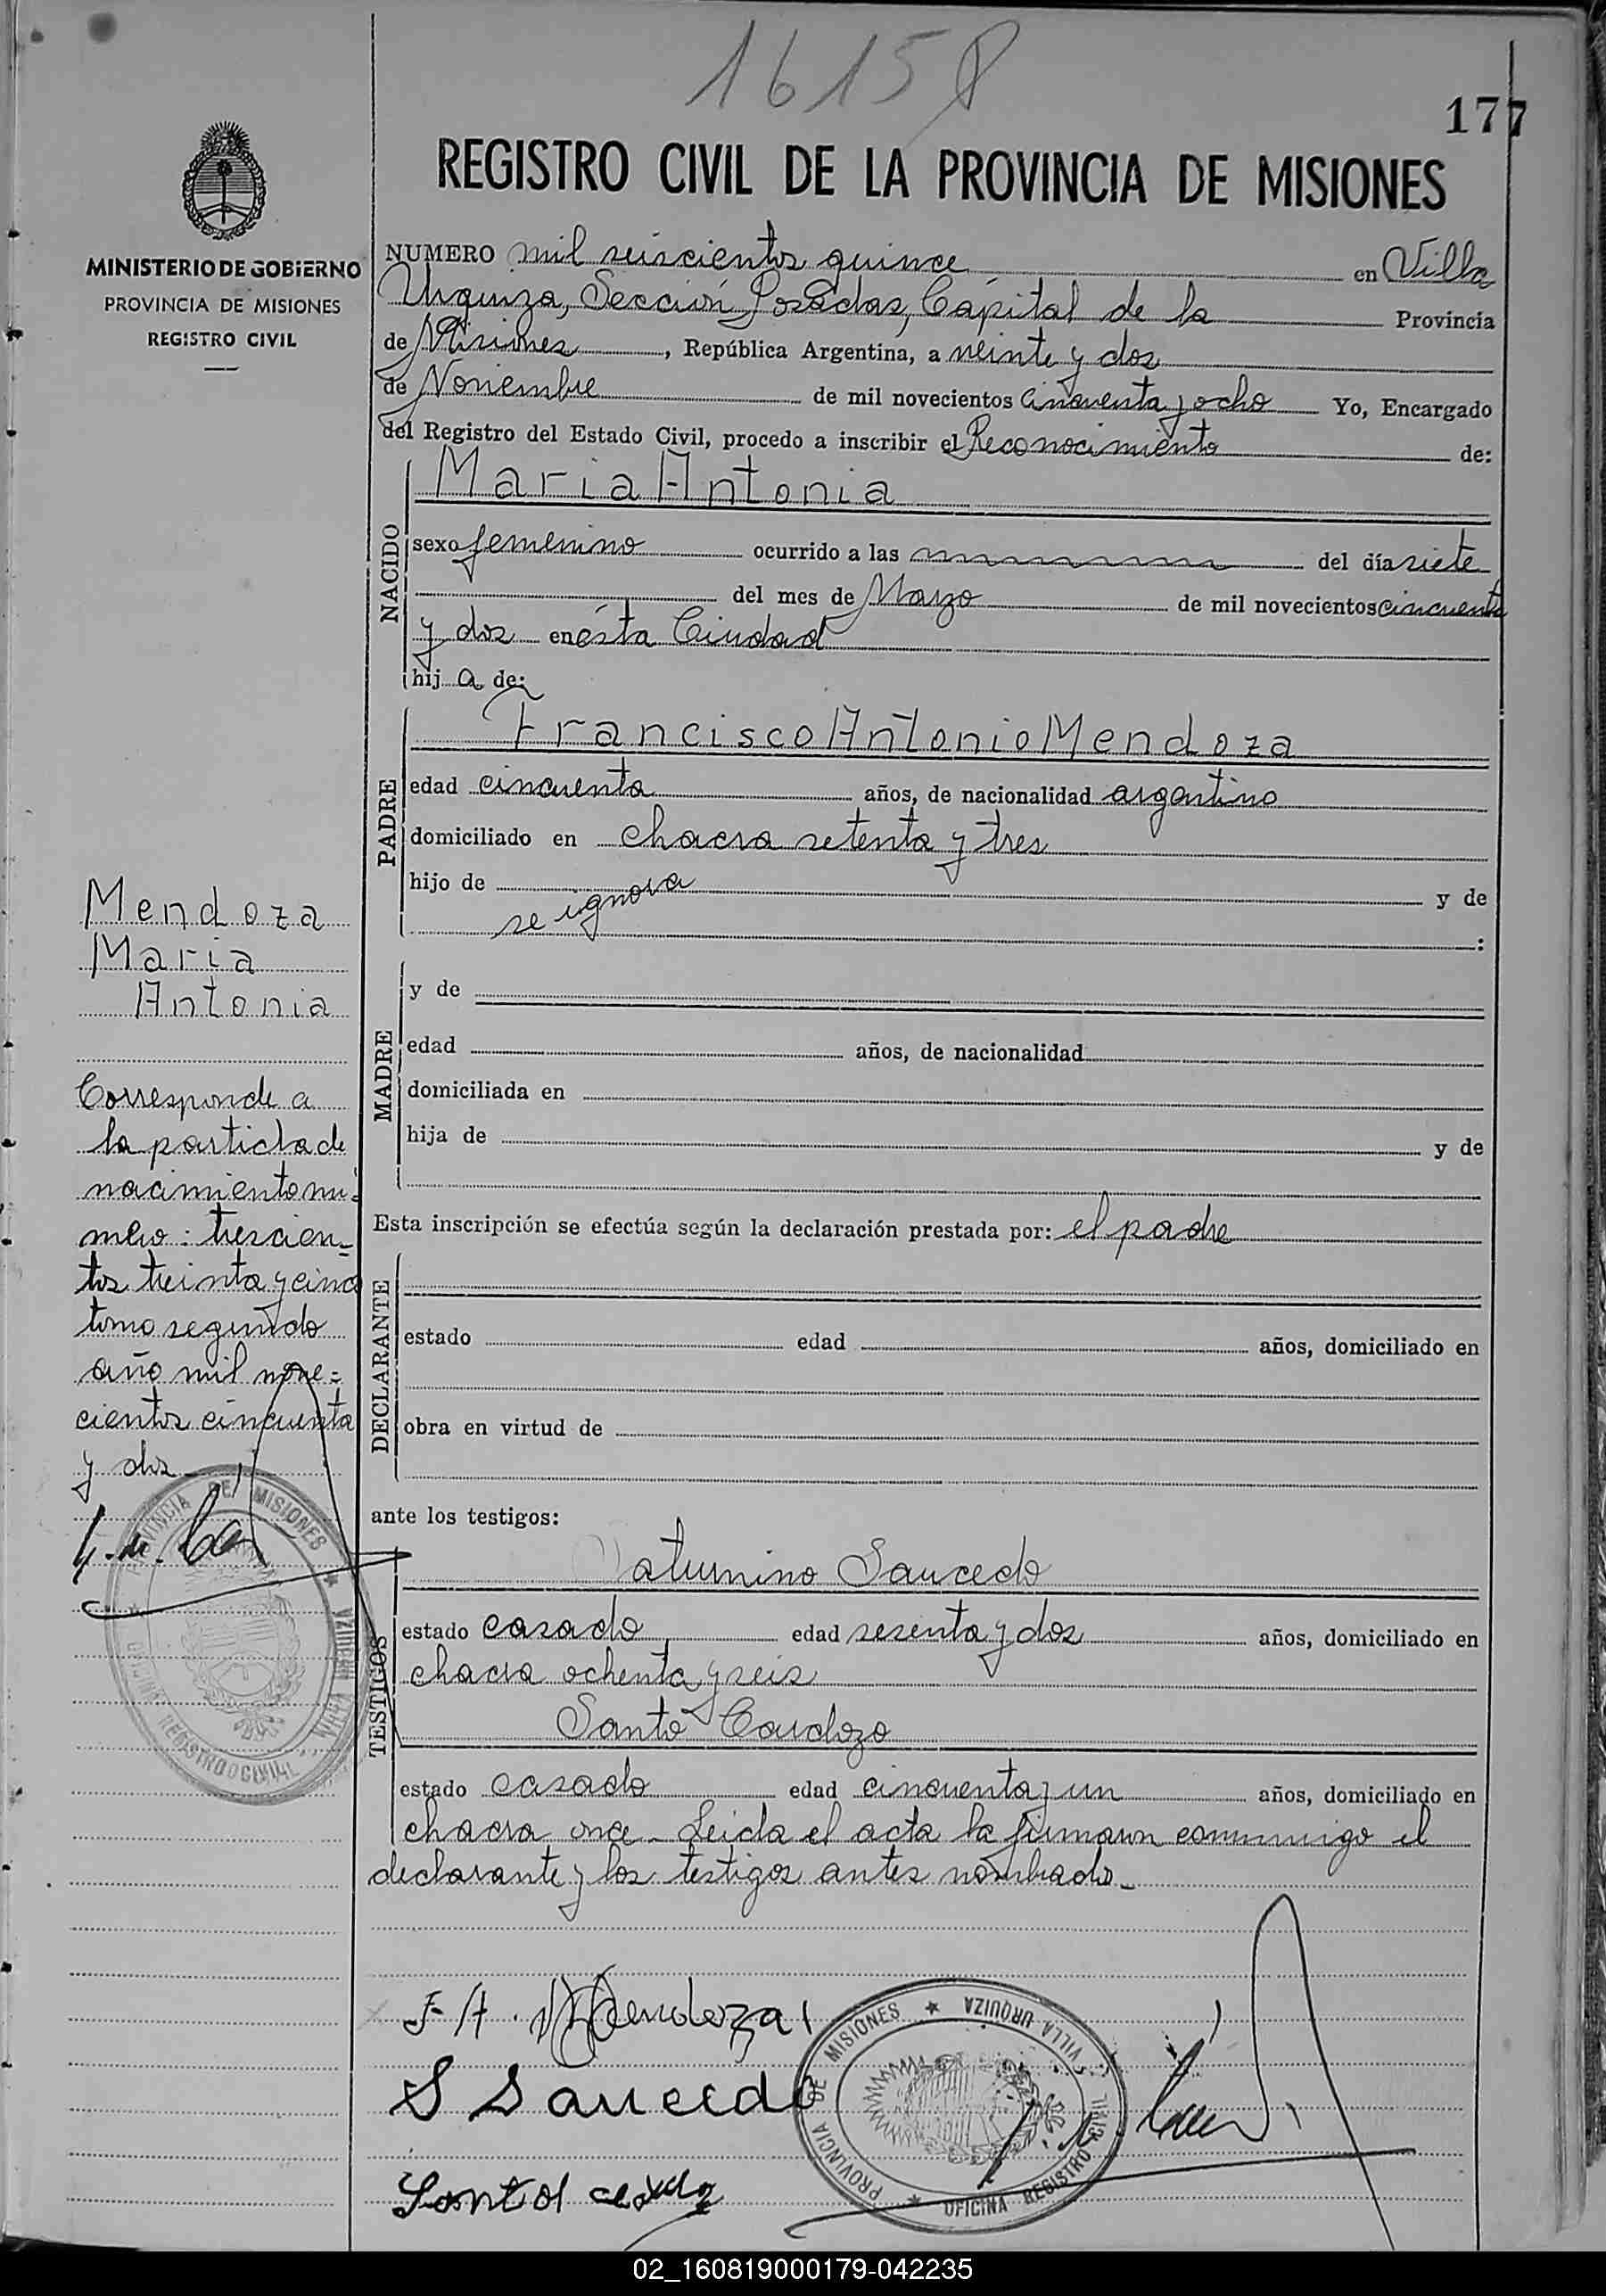 1615
177
REGISTRO CIVIL DE LA PROVINCIA DE MISIONES
MINISTERIO DE GOBIERNO
PROVINCIA DE MISIONES
REGISTRO CIVIL
NUMERO mil seiscientos quince en Villa
Urquiza, Sección Posadas, Cápital de la Provincia
de Misiones, República Argentina, a veinte y dos
de Noviembre de mil novecientos cincuenta y ocho Yo, Encargado
del Registro del Estado Civil, procedo a inscribir el Reconocimiento de:
NACIDO
Maria Antonia
sexo femenino ocurrido a las del día siete
del mes de Marzo de mil novecientos cincuenta
y dos en ésta Ciudad
hij a de:
PADRE
Francisco Antonio Mendoza
edad cincuenta años, de nacionalidad argentino
domiciliado en chacra setenta y tres
hijo de y de
se ignora :
MADRE
y de
edad años, de nacionalidad
domiciliada en
hija de y de
Esta inscripción se efectúa según la declaración prestada por: el padre
DECLARANTE
estado edad años, domiciliado en
obra en virtud de
ante los testigos:
TESTIGOS
Saturnino Saucedo
estado casado edad sesenta y dos años, domiciliado en
chacra ochenta y seis
Santo Cardozo
estado casado edad cincuenta y un años, domiciliado en
chacra once - Leida el acta la firmaron conmmigo el
declarante y los testigos antes nombrados -
F A. Mendoza
S Saucedo
PROVINCIA DE MISIONES ★ VILLA URQUIZA
OFICINA REGISTRO CIVIL ★
Mendoza
Maria
Antonia
Corresponde a
la partida de
nacimiento nu-
mero: trescien=
tos treinta y cinco
tomo segundo
año mil nove=
cientos cincuenta
y dos
PROVINCIA DE MISIONES ★ VILLA URQUIZA
OFICINA REGISTRO CIVIL
02_160819000179-042235